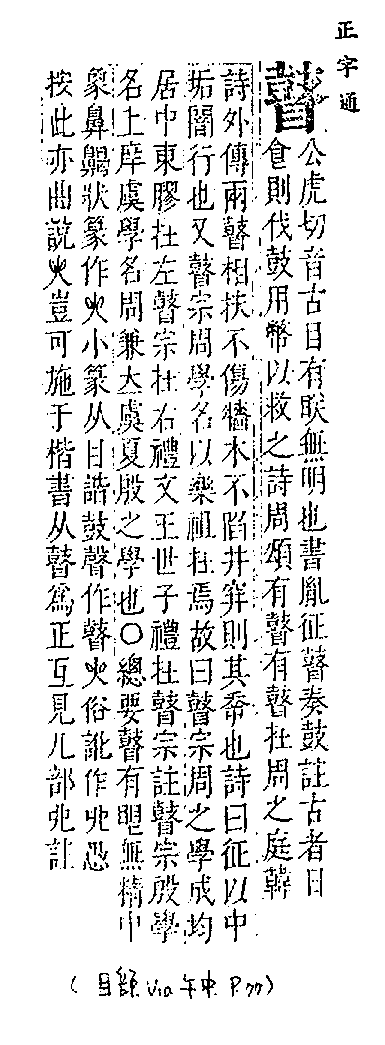 正字通
瞽
公虎切音古目有眹無明也書胤征瞽奏鼓註古者日
食則伐鼓用幣以救之詩周頌有瞽有瞽在周之庭韓
詩外傳兩瞽相扶不傷牆木不陷井穽則其幸也詩曰征以中
垢闇行也又瞽宗周學名以樂祖在焉故曰瞽宗周之學成均
居中東膠在左瞽宗在右禮文王世子禮在瞽宗註瞽宗殷學
名上庠虞學名周兼大虞夏殷之學也○總要瞽有無精中
象鼻狀篆作小篆从目諧鼓聲作瞽俗訛作恐
按此亦曲說豈可施于楷書从瞽爲正互見儿部註
(目錄 via 午中 P.77)